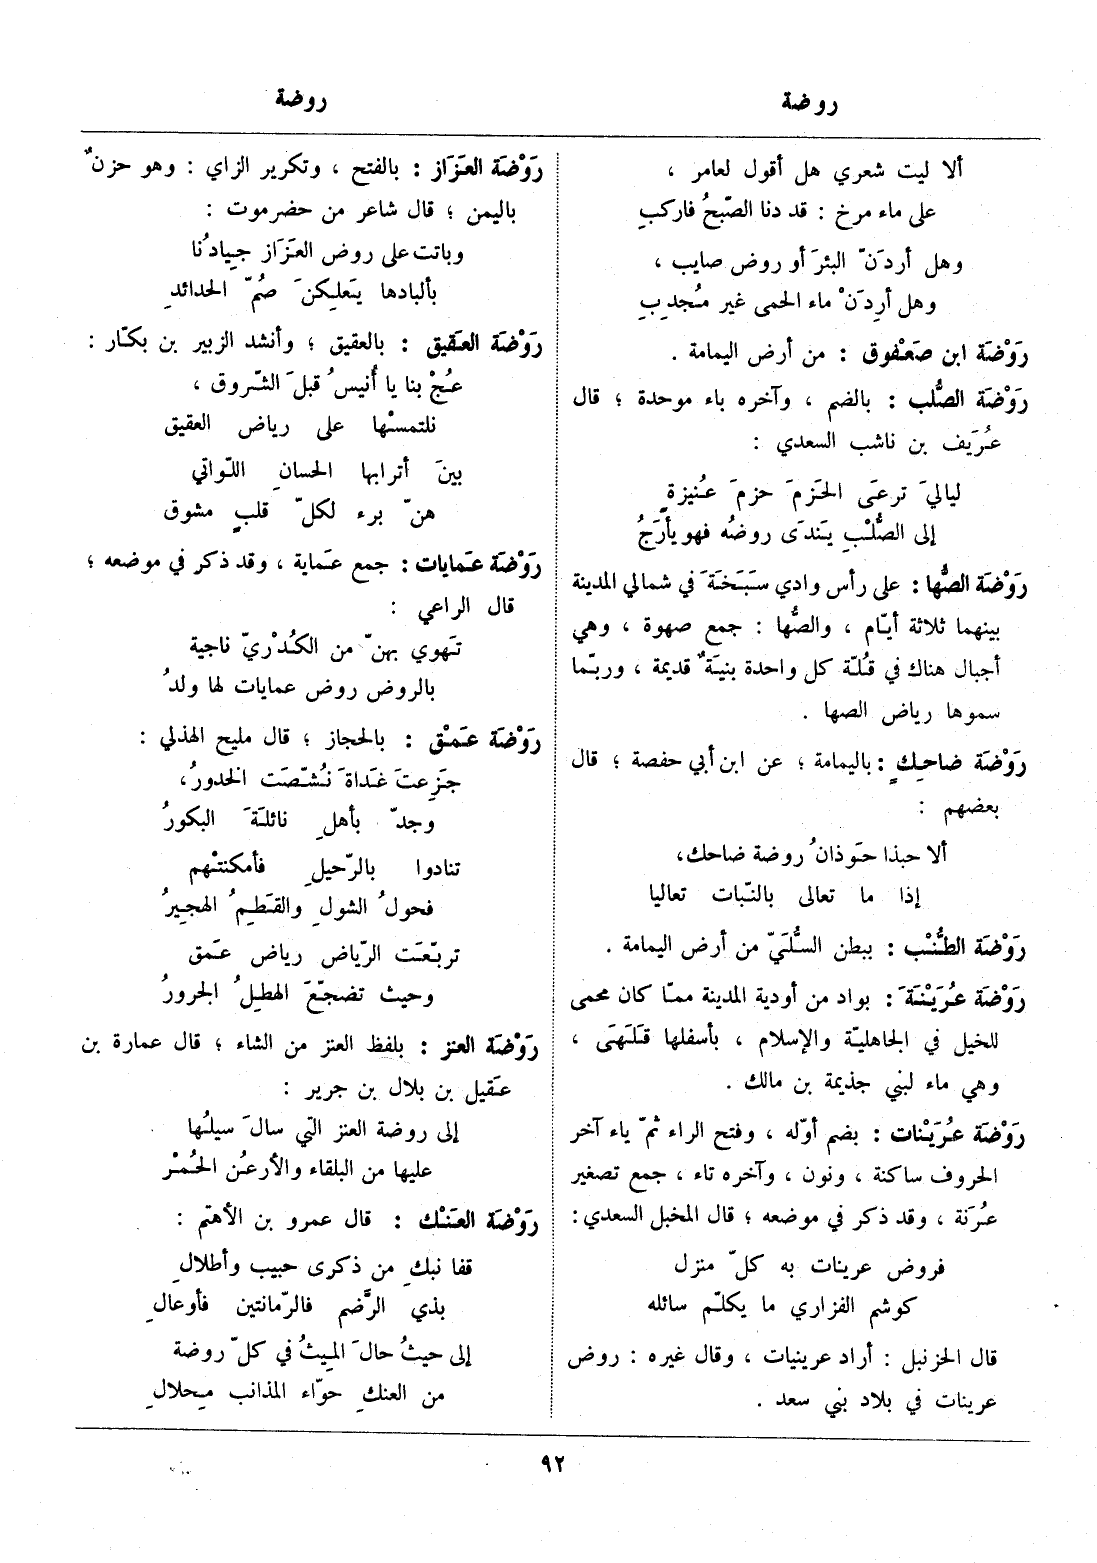 روضة
روضة
ألا ليت شعري هل أقول لعامر ،
على ماء مرخ : قد دنا الصّبحُ فاركبِ
وهل أردَنّ البئرَ أو روض صايب ،
وهل أرِدَنْ ماء الحمى غير مُجدِبِ
رَوْضَة ابن صَعْفوق : من أرض اليمامة .
رَوْضَة الصُّلب : بالضم ، وآخره باء موحدة ؛ قال
عُرَيف بن ناشب السعدي :
لياليَ ترعَى الحَزمَ حزمَ عُنيزةٍ
إلى الصُّلْبِ يَندَى روضُه فهو يأرَجُ
رَوْضَة الصُّها : على رأس وادي سَبَخَةَ في شمالي المدينة
بينهما ثلاثة أيّام ، والصُّها : جمع صهوة ، وهي
أجبال هناك في قُلّة كل واحدة بنيَةٌ قديمة ، وربّما
سموها رياض الصها .
رَوْضَة ضاحِكٍ : باليمامة ؛ عن ابن أبي حفصة ؛ قال
بعضهم :
ألا حبذا حَوذانُ روضة ضاحك،
إذا ما تعالى بالنّبات تعاليا
رَوْضَة الطُنْب : ببطن السُّلَيّ من أرض اليمامة .
رَوْضَة عُرَيْنَةَ : بواد من أودية المدينة ممّا كان محمى
للخيل في الجاهليّة والإسلام ، بأسفلها قَلَهَى ،
وهي ماء لبني جذيمة بن مالك .
رَوْضَة عُرَيْنات : بضم أوّله ، وفتح الراء ثمّ ياء آخر
الحروف ساكنة ، ونون ، وآخره تاء ، جمع تصغير
عُرَنة ، وقد ذكر في موضعه ؛ قال المخبل السعدي :
فروض عرينات به كلّ منزل
كوشم الفزاري ما يكلّم سائله
قال الحزنبل : أراد عرينيات ، وقال غيره : روض
عرينات في بلاد بني سعد .
رَوْضَة العَزَاز : بالفتح ، وتكرير الزاي : وهو حزنٌ
باليمن ؛ قال شاعر من حضرموت :
وباتت على روض العَزَاز جيِادُنا
بألبادها يَعلِكنَ صُمّ الحدائدِ
رَوْضَة العَقيق : بالعقيق ؛ وأنشد الزبير بن بكّار :
عُجْ بنا يا أُنيسُ قبلَ الشّروق ،
نلتمسْها على رياض العقيق
بينَ أترابها الحسانِ اللّواتي
هنّ برء لكلّ قلبٍ مشوق
رَوْضَة عَمايات : جمع عَماية ، وقد ذكر في موضعه ؛
قال الراعي :
تَهوي بهنّ من الكُدْريّ ناجية
بالروض روض عمايات لها ولدُ
رَوْضَة عَمْق : بالحجاز ؛ قال مليح الهذلي :
جَزِعتَ غَداةَ نُشّصَت الخدورُ ،
وجدّ بأهلِ نائلَةَ البكورُ
تنادوا بالرّحيلِ فأمكنتْهم
فحولُ الشولِ والقَطِمُ الهجيرُ
تربّعَت الرّياض رياض عَمق
وحيث تضجّعَ الهطِلُ الجرورُ
رَوْضَة العنز : بلفظ العنز من الشاء ؛ قال عمارة بن
عَقيل بن بلال بن جرير :
إلى روضة العنز التي سالَ سيلُها
عليها من البلقاء والأرعُن الحُمْر
رَوْضَة العَنْك : قال عمرو بن الأهتم :
قفا نبكِ من ذكرى حبيب وأطلالِ
بذي الرَّضم فالرّمانتين فأوعالِ
إلى حيثُ حالَ المِيثُ في كلّ روضة
من العنكِ حوّاء المذانب مِحلالِ
٩٢